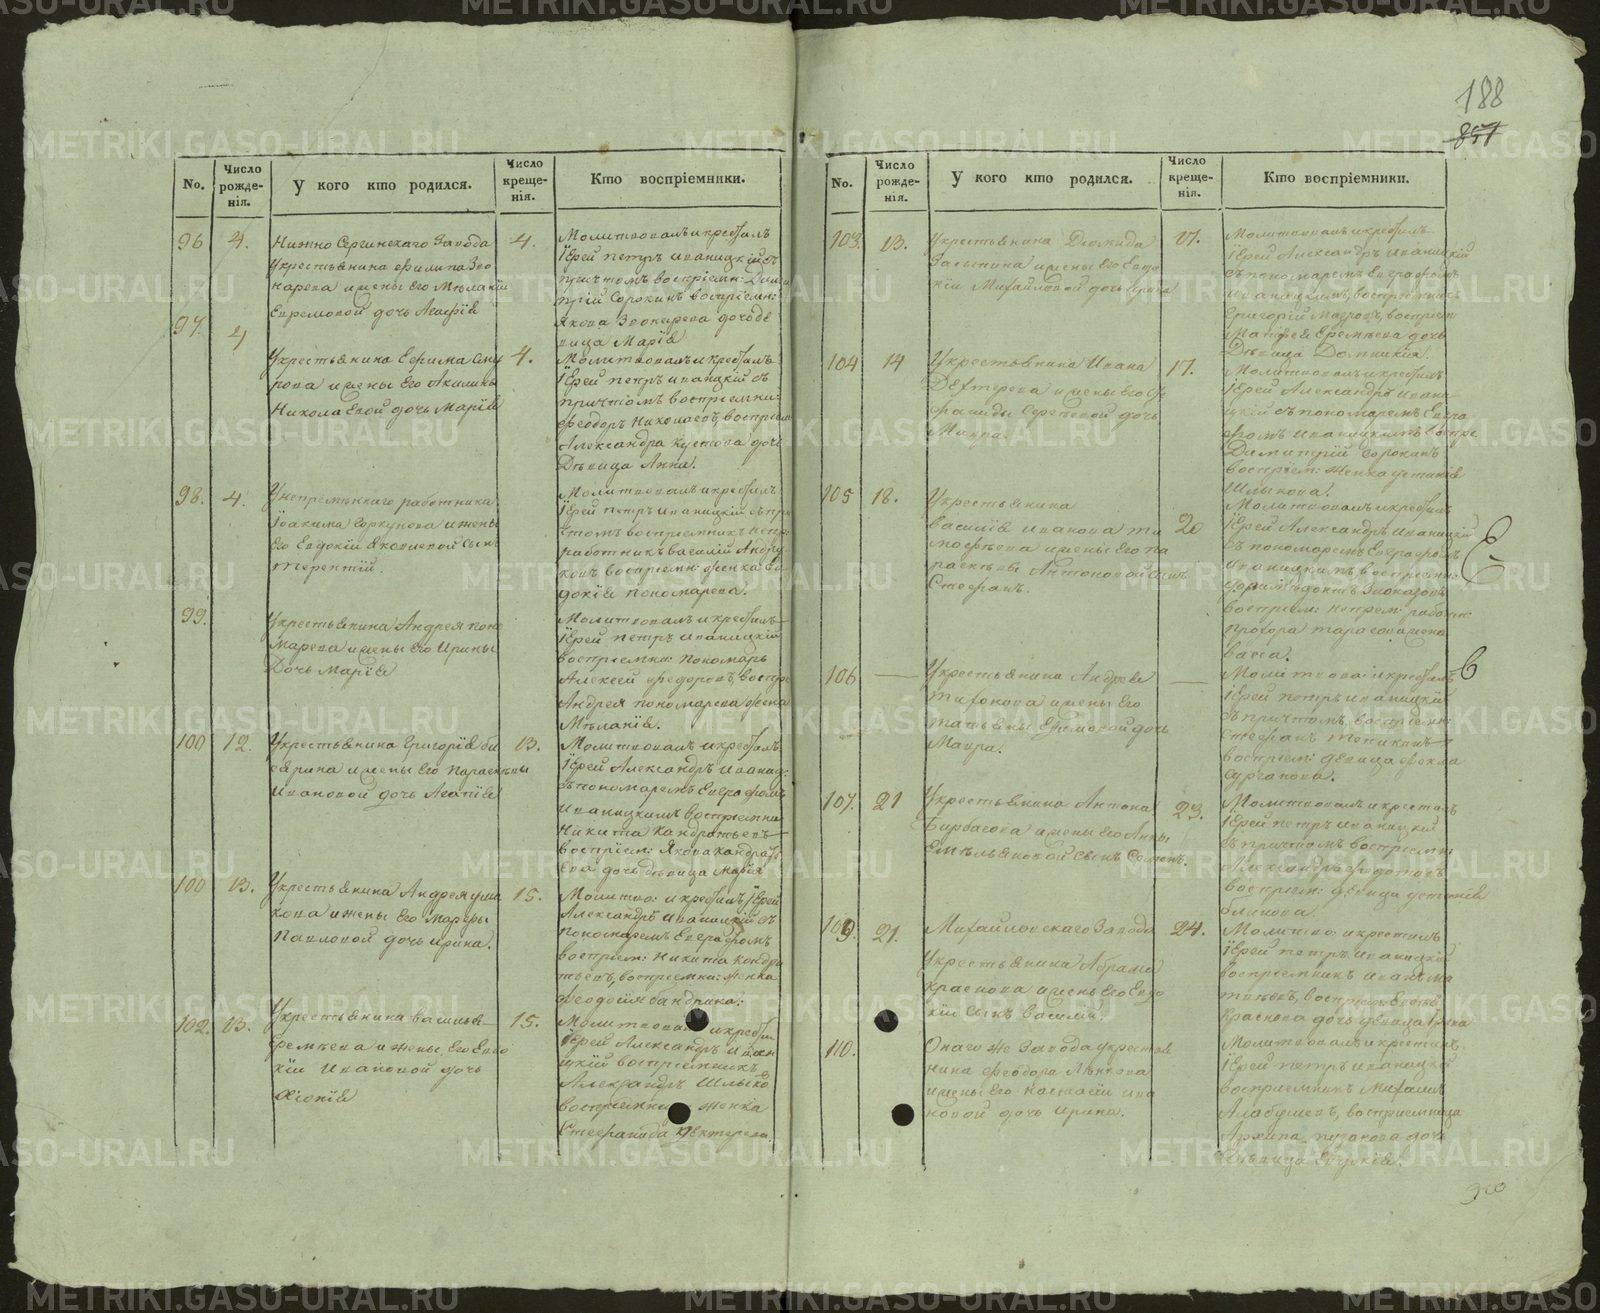 188
857
No.
Число рожде-нія.
У кого кто родился.
Число креще-нія.
Кто воспріемники.
96
4.
Нижно Сергинскаго Завода
Укрестьянина Филипа Зво
нарева ижены Его Мѣланіи
Ефремовой дочь Агафія
4.
Молитвовалъ и крестилъ
Іерей петръ иваницкій съ
причтомъ воспріемн: Дими
трій Сорокинъ воспріемн:
Якова Звонарева дочь дѣ
вица Марія
97.
4
Укрестьянина Ефима
рова ижены Его Акилины
Николаевой дочь Марія
4.
Молитвовалъ и крестилъ
Іерей петръ иваницкій съ
причтомъ воспріемни:
Феодоръ Николаевъ, воспріем
Александра Кустова дочь
Дѣвица Анна.
98.
4.
Унепремѣннаго работника
Іоакима Горкунова ижены
Его Евдокіи Яковлевой сынъ
Терентій.
Молитвовалъ и крестилъ
Іерей петръ иваницкій съ при
чтомъ воспріемникъ непр:
работникъ василій
воспріемн: женка Ев
докія пономарева.
99.
Укрестьянина Андрея поно
Марева ижены Его Ирины
Дочь Марія
Молитвовалъ и крестилъ
Іерей петръ иваницкій
воспріемни: пономарь
Алексей федоровъ, воспр
Андрея пономарева жена
Мѣланія.
100
12.
Укрестьянина Григорія би
сярина ижены Его Параскевы
Ивановой дочь Агапія
13.
Молитвовалъ и крестилъ
Іерей Александръ иваниц:
съ пономаремъ Евграфомъ
Иваницкимъ воспріемни
Никита Кандратьевъ
воспріем: Якова Кандрать
Ева дочь дѣвица Марья
100
13.
Укрестьянина Андрея
кова ижены Его Марфы
Павловой дочь ирина.
15.
Молитво: и крестилъ Іерей
Александръ Иваницкій съ
пономаремъ Евграфомъ
воспріем: Никита Кондра
тьевъ, воспріемни: женка
Феодосія бандрина:
102.
13.
Укрестьянина василья
Еремѣева ижены Его Евдо
кіи Ивановой дочь
Хіонія
15.
Молитвовалъ и крести
Іерей Александръ Иван
ицкій воспріемникъ
Александръ Шлыко
воспріемни женка
Стефанида Дектерева
No.
Число рожде-нія.
У кого кто родился.
Число креще-нія.
Кто воспріемники.
103.
13.
Укрестьянина Діомида
Залыпина ижены Его Евдо
кіи Михайловой дочь Ирина
17.
Молитвовалъ и крестилъ
Іерей Александръ иваницкій
съ пономаремъ Евграфомъ
иваницкимъ воспріемникъ
Григорій Мазуровъ, воспріем
Матфея Еремѣева дочь
Дѣвица Домникия
104
14
Укрестьянина Ивана
Дехтерева ижены Его
фаниды Сергѣевой дочь
Мавра.
17.
Молитвовалъ и крестилъ
Іерей Александръ ивани
цкій съ пономаремъ Евгра
фомъ Иваницкимъ воспре
Димитрій Сорокинъ
воспріем: женка устиния
Шлыкова.
105
18.
Укрестьянина
василія иванова ти
мофѣева ижены Его па
раскевы Антоновой сынъ
Стефанъ.
20
Молитвовалъ и крестилъ
Іерей Александръ Иваницкій
съ пономаремъ Евграфомъ
Иваницкимъ воспріемни
воспріем: непрем: работн:
прохора тарасова жена
васса.
106
Укрестьянина Андрея
тихонова ижены Его
татьяны Ефимовой дочь
Мавра.
Молитвова: и крестилъ
Іерей петръ иваницкій
съ причтомъ, воспріемн:
Стефанъ
воспріем: дѣвица фекла
Сурганова.
107.
21
Укрестьянина Антона
Бирбасова ижены Его Анны
Емѣльяновой сынъ Семенъ.
23.
Молитвовалъ и крестилъ
Іерей петръ иваницкій
съ причтомъ воспріемни
Александръ федотовъ
воспріем: дѣвица устинія
блинова.
109.
21.
Михайловскаго Завода
Укрестьянина Абрама
Краснова ижены Его Евдо
кіи сынъ василій.
24.
Молитво: и крестилъ
Іерей петръ иваницкій
воспріемникъ иванъ
Краснова дочь дѣвица
110.
Онаго же Завода укрестья
нина феодора
ижены Его Настасіи ива
новой дочь ирина.
Молитвовалъ и крестилъ
Іерей петръ иваницкій
воспріемникъ Михаилъ
Алабушевъ, воспріемница
Архипа пузакова дочь
дѣвица